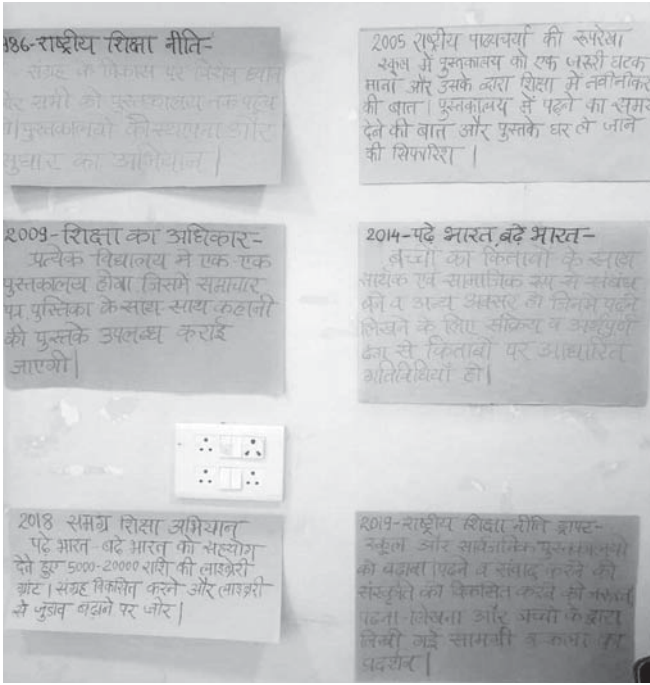 986-राष्ट्रीय शिक्षा नीति-
संग्रह के विकास पर विशेष ध्यान
सभी को पुस्तकालय तक पहुंच
पुस्तकालयों की स्थापना और
सुधार का अभियान |
2005 राष्ट्रीय पाठ्यचर्या की रूपरेखा
स्कूल में पुस्तकालय को एक जरूरी घटक
माना और उसके द्वारा शिक्षा में नवीनीकर
की बात | पुस्तकालय में पढ़ने का समय
देने की बात और पुस्तके घर ले जाने
की सिफारिश |
2009-शिक्षा का अधिकार-
प्रत्येक विद्यालय में एक-एक
पुस्तकालय होगा जिसमें समाचार
पत्र पुस्तिका के साथ-साथ कहानी
की पुस्तके उपलब्ध कराई
जाएगी |
2014-पढे भारत,बढे भारत-
बच्चों का किताबों के साथ
सार्थक एवं सामाजिक रूप से संबंध
बने व अन्य अवसर हो जिनमें पढने
लिखने के लिए सक्रिय व अर्थपूर्ण
ढंग से किताबों पर आधारित
गतिविधियाँ हो |
2018 समग्र शिक्षा अभियान
पढे भारत-बढे भारत को सहयोग
देते हुए 5000-20000 राशि की लाइब्रेरी
ग्रांट | संग्रह विकसित करने और लाइब्रेरी
से जुडाव बढ़ाने पर जोर |
2019-राष्ट्रीय शिक्षा नीति ड्राफ्ट-
स्कूल और सार्वजनिक पुस्तकालयों
को बढाना | पढने व संवाद करने की
संस्कृति को विकसित करने की जरूरत
पढना-लिखना और बच्चों के द्वारा
लिखी गई सामग्री व कला का
प्रदर्शन |